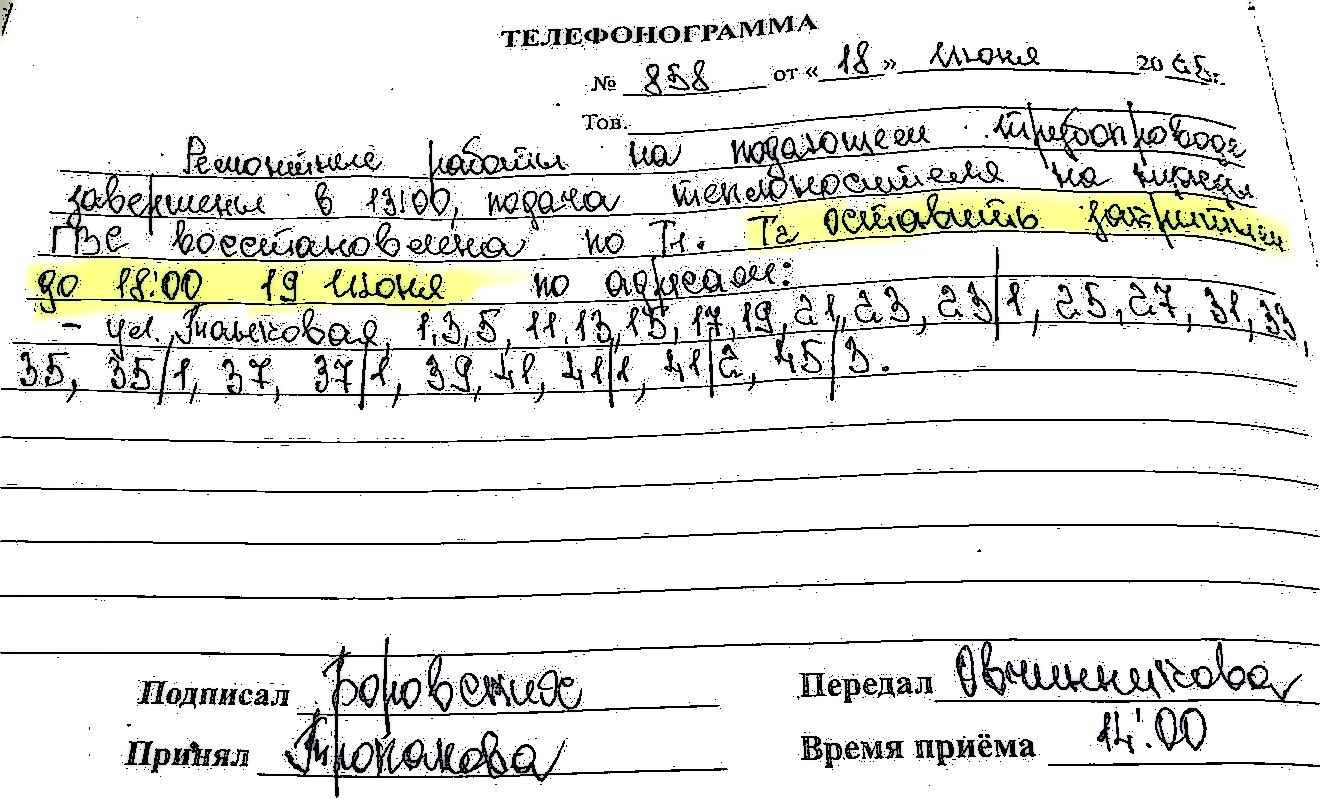 ТЕЛЕФОНОГРАММА
№ 858 от «18» июня 2025г.
Тов.
Ремонтные работы на подающем трубопроводе
завершены в 13:00, подача теплоносителя на нужды
ГВС восстановлена по Т1. Т2 оставить закрытым
до 18:00 19 июня по адресам:
- ул. Танковая, 1,3,5, 11,13,15,17,19,21,23, 23/1, 25,27, 31,33,
35, 35/1, 37, 37/1, 39, 41, 41/1, 41/2, 45/3.
Подписал Боровских Передал Овчинникова
Принял Время приёма 14:00